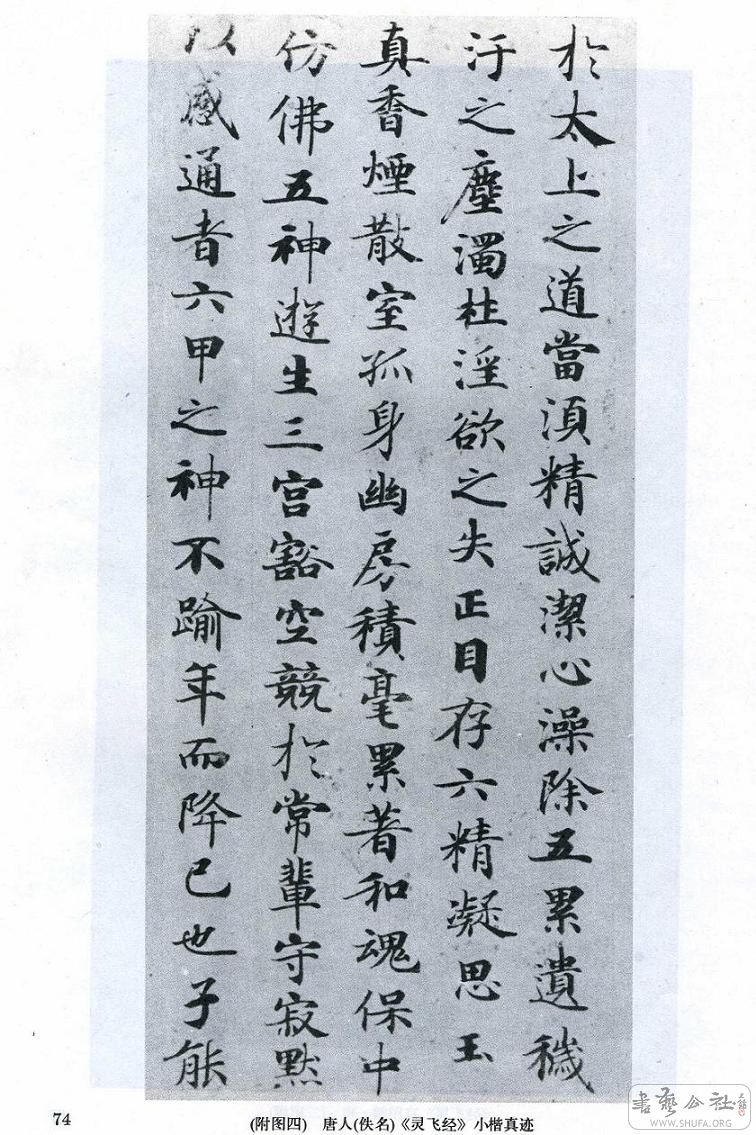 於太上之道當湏精誠潔心澡除五累遺穢
汙之塵濁杜淫欲之失正目存六精凝思玉
真香煙散室孤身幽房積毫累著和魂保中
仿佛五神遊生三宮豁空競於常輩守寂默
以感通者六甲之神不踰年而降已也子能
74
(附图四) 唐人(佚名)《灵飞经》小楷真迹
書藝公社
WWW.SHUFA.ORG